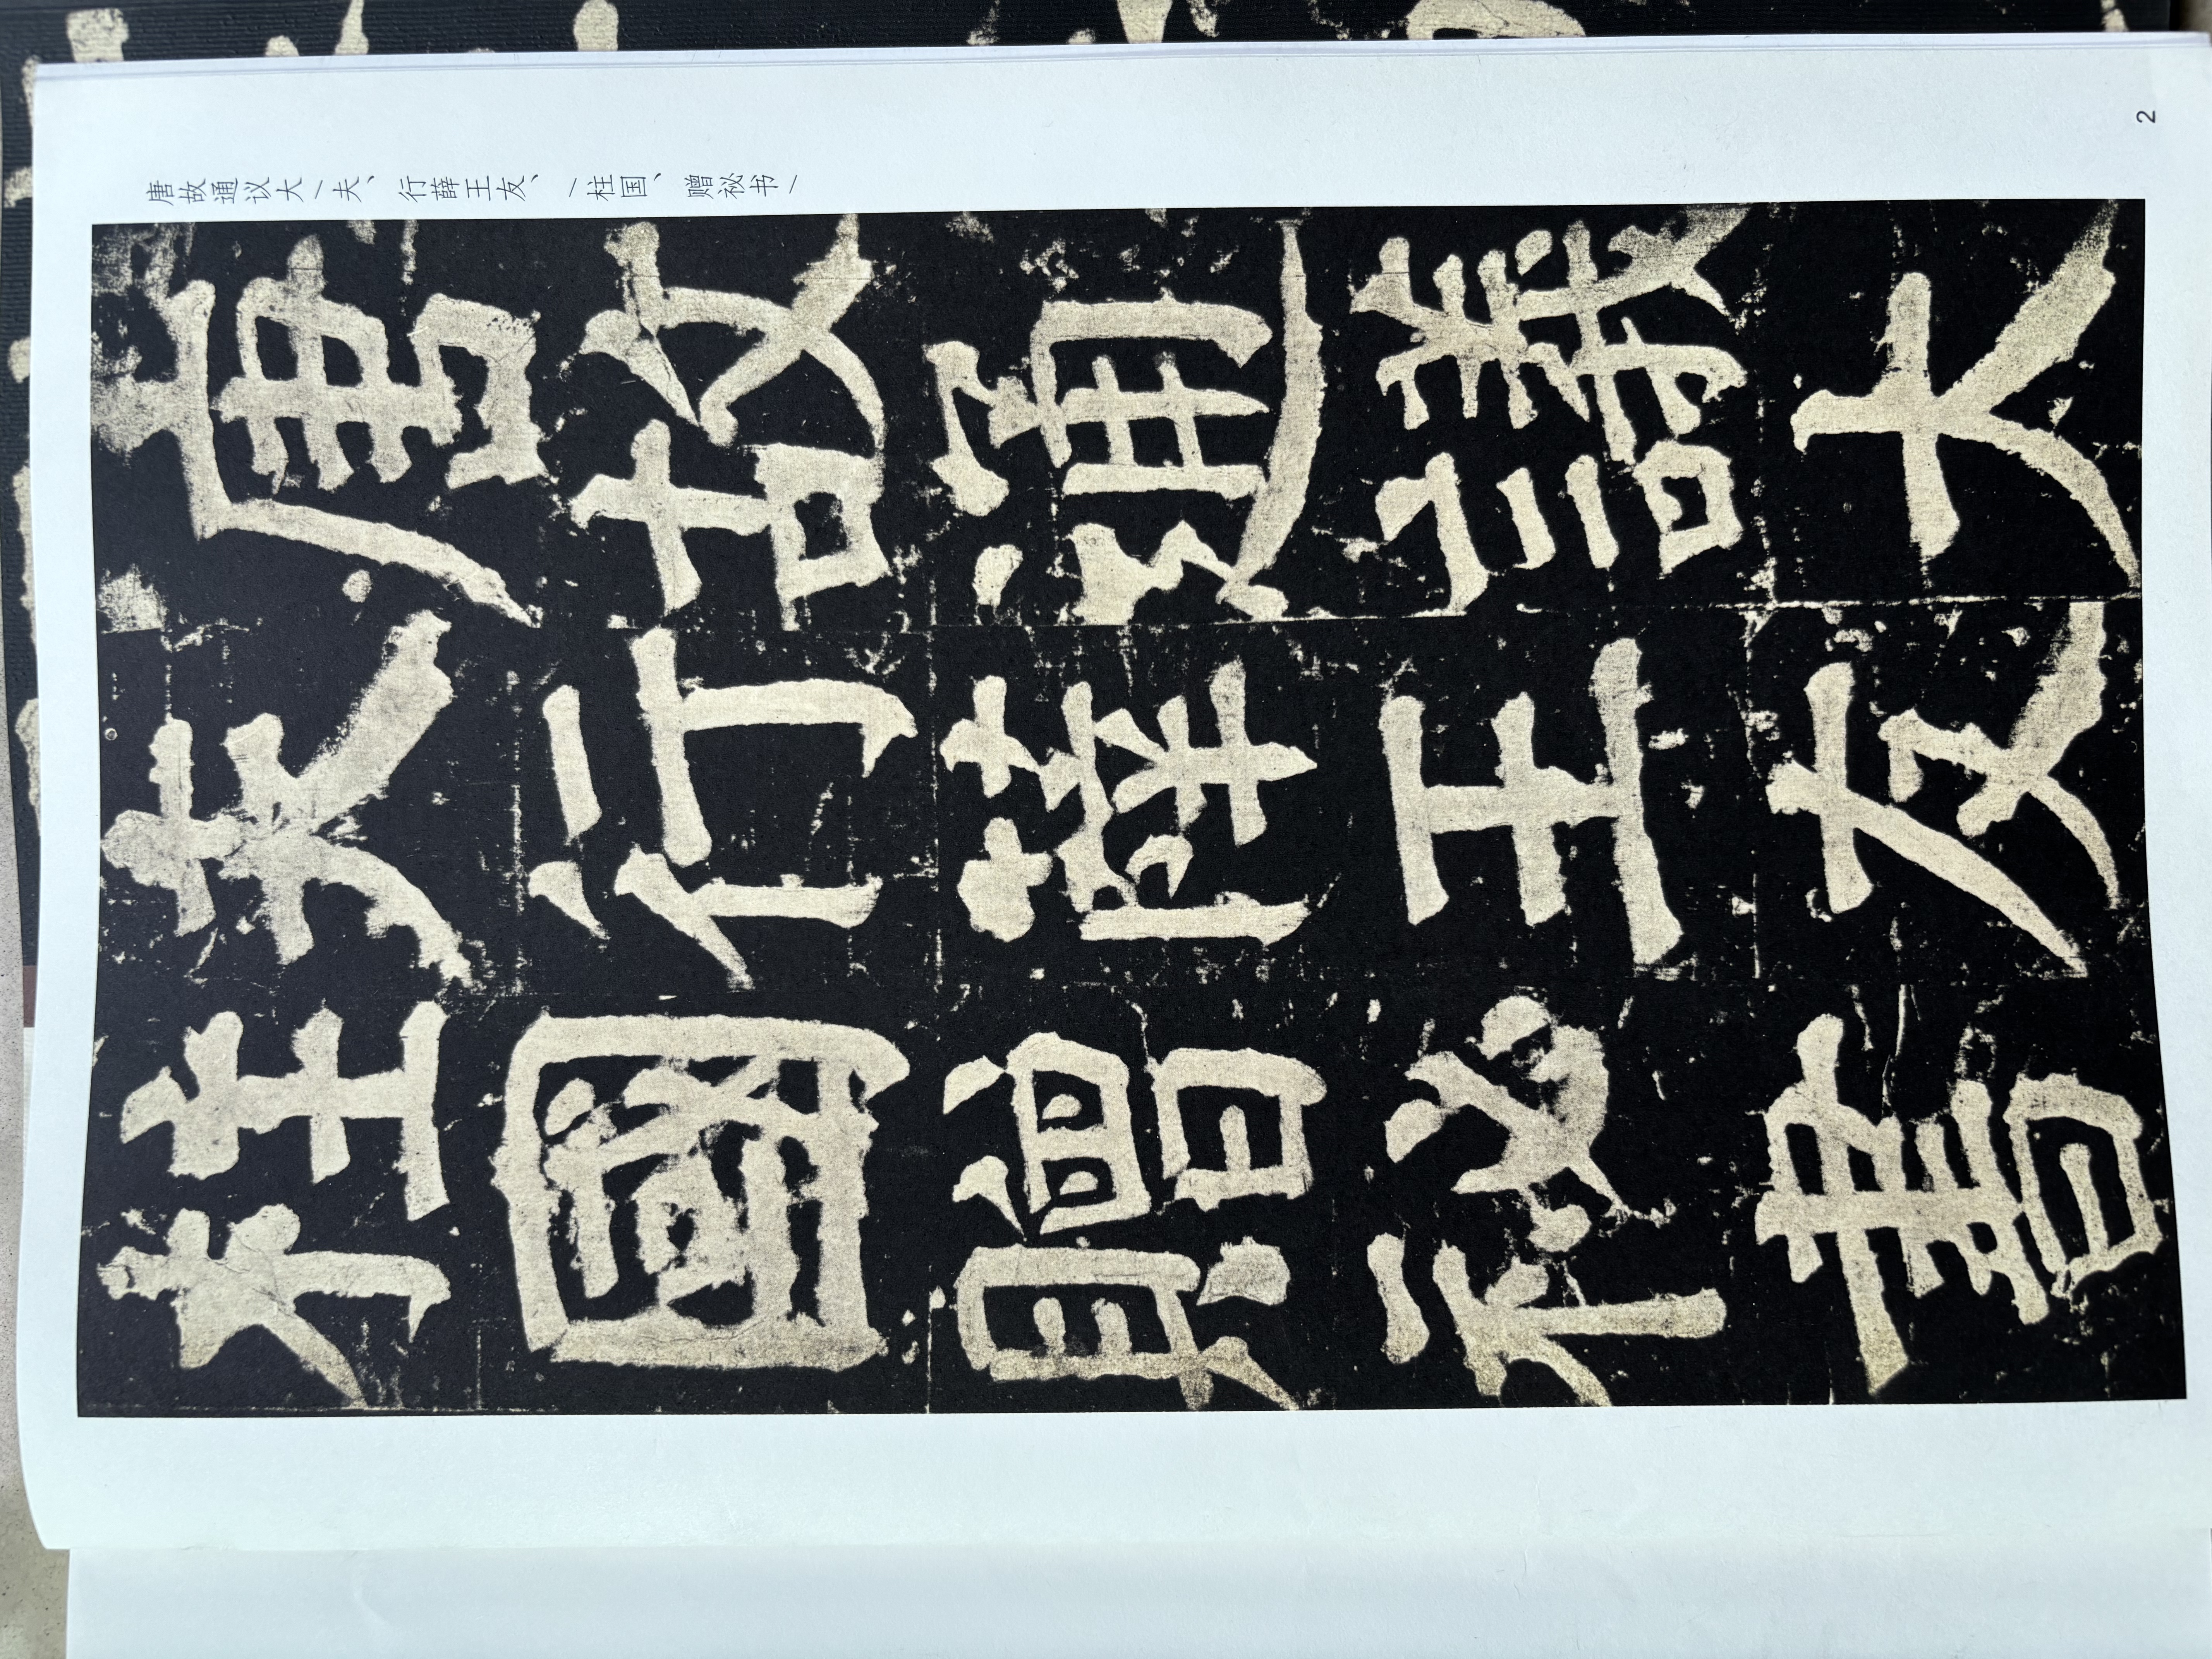 唐故通議大
夫行薛王友
柱國贈祕書
唐故通议大/夫、行薛王友、/柱国、赠祕书/
2